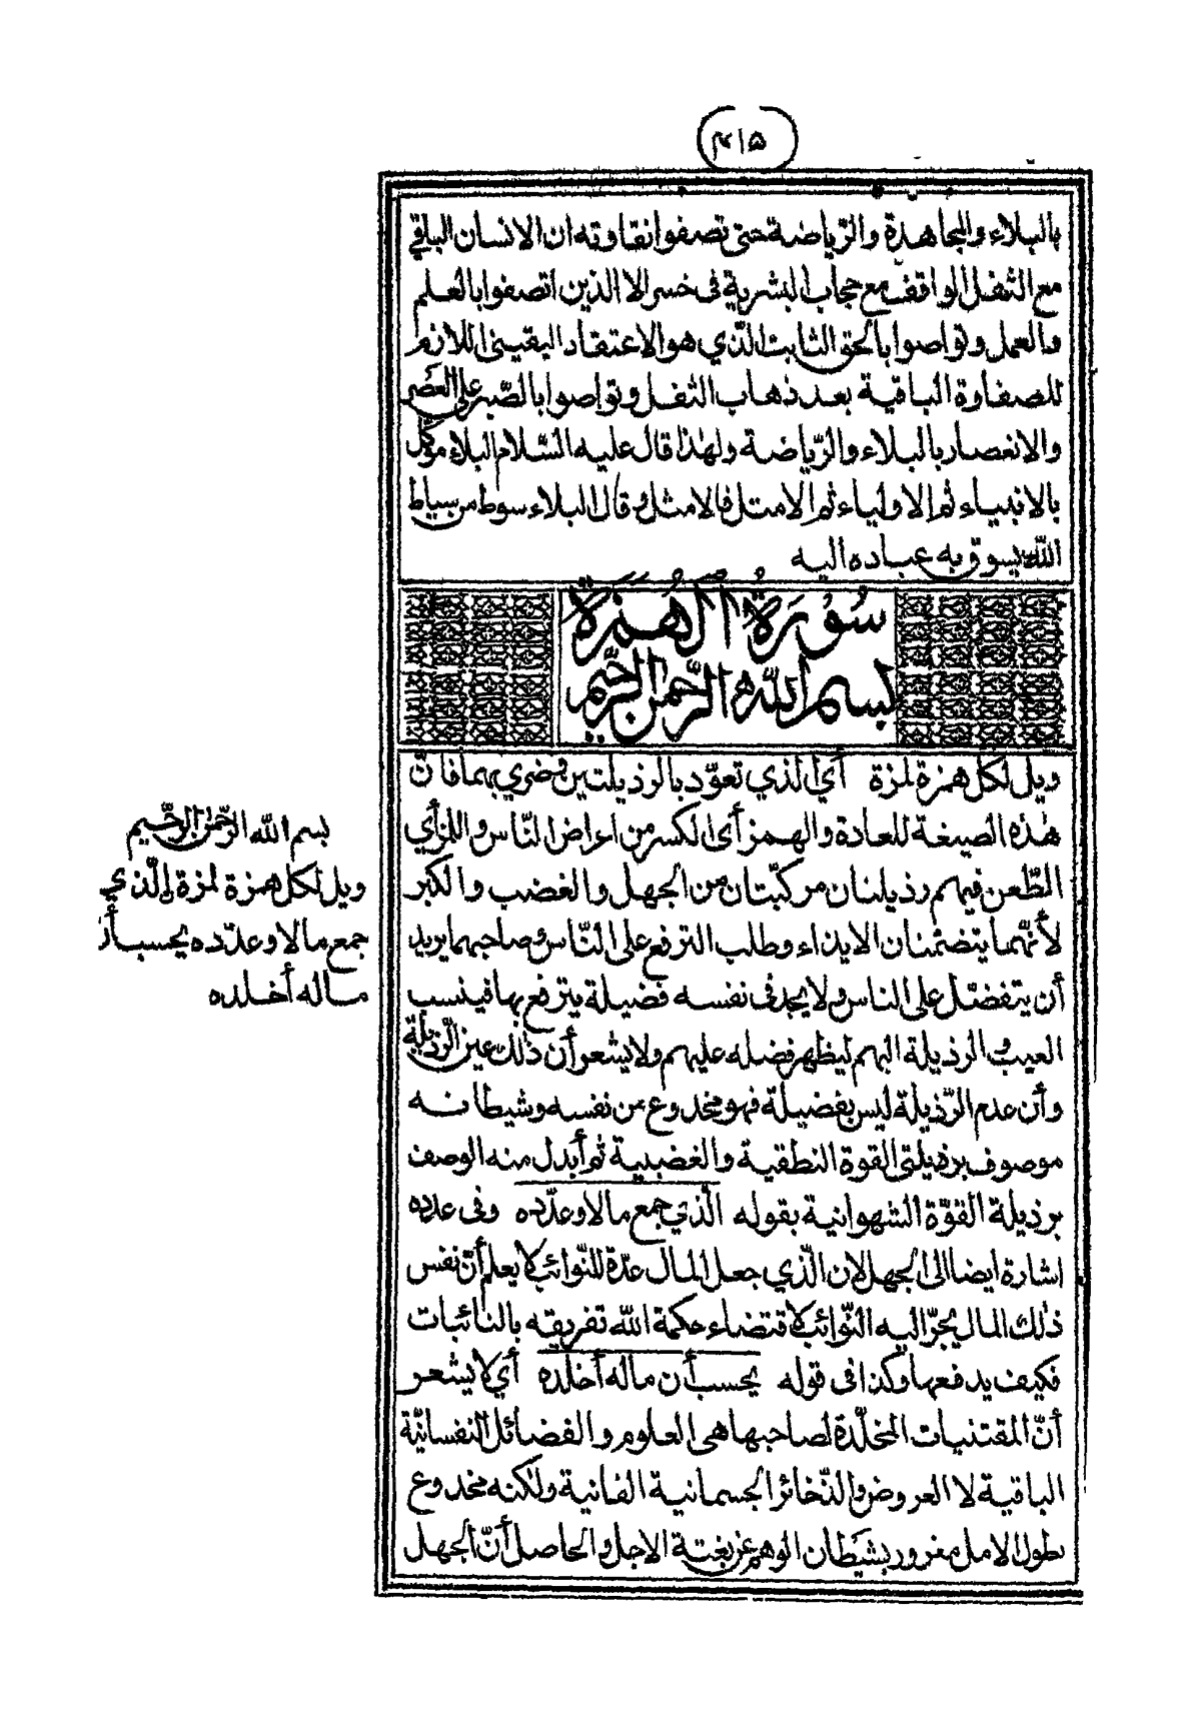 ٤١٥
بالبلاء والمجاهدة والرّياضة حتى تصفوا نقاوته ان الانسان الباقي
مع الثفل الواقف مع حجاب البشرية فى خسر الا الذين اتصفوا بالعلم
والعمل وتواصوا بالحق الثابت الّذي هو الاعتقاد اليقينى اللازم
للصفاوة الباقية بعد ذهاب الثفل وتواصوا بالصّبر على العصر
والانعصار بالبلاء والرّياضة ولهذا قال عليه السّلام البلاء موكّل
بالانبياء ثم الاولياء ثم الامثل فالامثل وقال البلاء سوط من سياط
الله يسوق به عباده اليه
سُورَةُ الْهُمَزَة
بسم الله الرّحمن الرّحيم
ويل لكل همزة لمزة أي الذي تعوّد بالرذيلتين وضري بهما فانّ
هذه الصيغة للعادة والهمز أى الكسر من اعراض النّاس واللمز أي
الطّعن فيهم رذيلتان مركّبتان من الجهل والغضب والكبر
لأنّهما يتضمنان الايذاء وطلب الترفع على النّاس وصاحبهما يريد
أن يتفضّل على الناس ولا يجد فى نفسه فضيلة يترفع بها فينسب
العيب والرذيلة اليهم ليظهر فضله عليهم ولا يشعر أن ذلك عين الرّذيلة
وأن عدم الرّذيلة ليس بفضيلة فهو مخدوع من نفسه وشيطانه
موصوف برذيلتى القوة النطقية والغضبية ثم أبدل منه الوصف
برذيلة القوّة الشهوانية بقوله الّذي جمع مالا وعدّده وفى عدده
اشارة ايضا الى الجهل لان الّذي جعل المال عدّة للنّوائب لا يعلم أنّ نفس
ذلك المال يجرّ اليه النّوائب لاقتضاء حكمة الله تفريقه بالنائبات
فكيف يدفعها وكذا فى قوله يحسب أن ماله أخلده أي لا يشعر
أنّ المقتنيات المخلّدة لصاحبها هى العلوم والفضائل النفسانيّة
الباقية لا العروض والذّخائر الجسمانية الفانية ولكنه مخدوع
بطول الامل مغرور بشيطان الوهم عن بغتة الاجل والحاصل أنّ الجهل
بسم الله الرّحمن الرّحيم
ويل لكل همزة لمزة الّذي
جمع مالا وعدّده يحسب أن
ماله أخلده